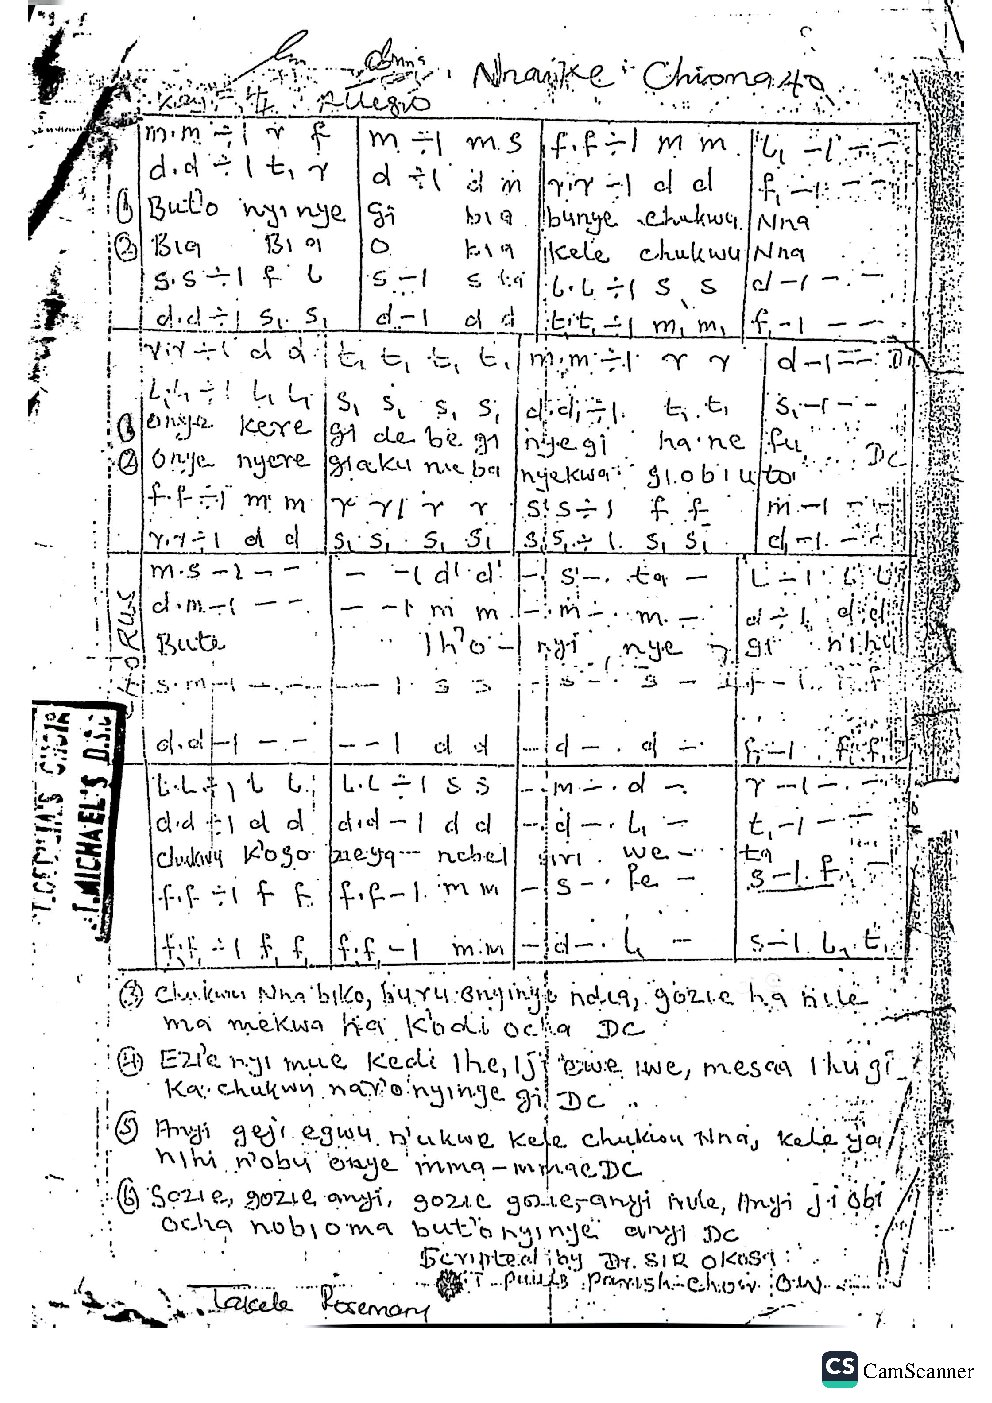 Nnaike Chioma 40
Key Allegro
m.m ÷| r f m ÷| m s f.f ÷| m m l₁ -| - -
d.d ÷| t₁ r d ÷| d m r.r ÷| d d f₁ -| - -
① But'o nyinye gi bia bunye chukwu Nna
② Bia Bia o bia kele chukwu Nna
s.s ÷| f l s -| s ta l.l ÷| s s d -| - -
d.d ÷| s₁ s₁ d -| d d t₁.t₁ ÷| m₁ m₁ f₁ -| - -
r.r ÷| d d t₁ t₁ t₁ t₁ m.m ÷| r r d -| - -
l₁.l₁ ÷| l₁ l₁ s₁ s₁ s₁ s₁ d.d ÷| t₁ t₁ s₁ -| - -
① kere gi de be gi nyegi ha ne fu DC
② onye nyere giaku nwe ba nyekwa gi obi uto
f.f ÷| m m r r| r r s s ÷| f f m -| - -
r.r ÷| d d s₁ s₁ s₁ s₁ s₁ s₁ ÷| s₁ s₁ d -| - -
CHORUS
m.s -| - - - -| d' d' - s - ta - l ÷| l l
d.m -| - - - -| m m - m - m - d ÷| d d
Bute Ih'o - nyi nye gi nihi
s.m -| - - - -| s s - s - s - f -| f f
d.d -| - - - -| d d - d - d - f₁ -| f₁ f₁
l.l ÷| l l l.l ÷| s s - m - d - r -| - -
d.d ÷| d d d.d -| d d - d - l₁ - t₁ -| - -
chukwu Kogo zieya nebel giri we - ta
f.f ÷| f f f.f -| m m - s - fe - s -| f
f₁.f₁ ÷| f₁ f₁ f₁.f₁ -| m m - d - l₁ - s -| l₁ t₁
T. CECILIA'S CHOIR
T. MICHAEL'S D.S.C
③ Chukwu Nna biko, buru onyinye ndia, gozie ha nile
ma mekwa ha k'odi ocha DC
④ Ezie nyi mue kedi Ihe, Iji ewe iwe, mesaa Ihu gi
ka chukwu nar'onyinge gi DC
⑤ Anyi geji egwu n'ukwe kele chukwu Nna, kele ya
nihi n'obu onye mma-mmae DC
⑥ Gozie, gozie anyi, gozie gozie, anyi nile, Anyi ji obi
ocha nobioma but'onyinye anyi DC
Scripted by Dr. SIR OKOSA
T. Paul's Parish Choir OW
Takele Rosemary
CS CamScanner